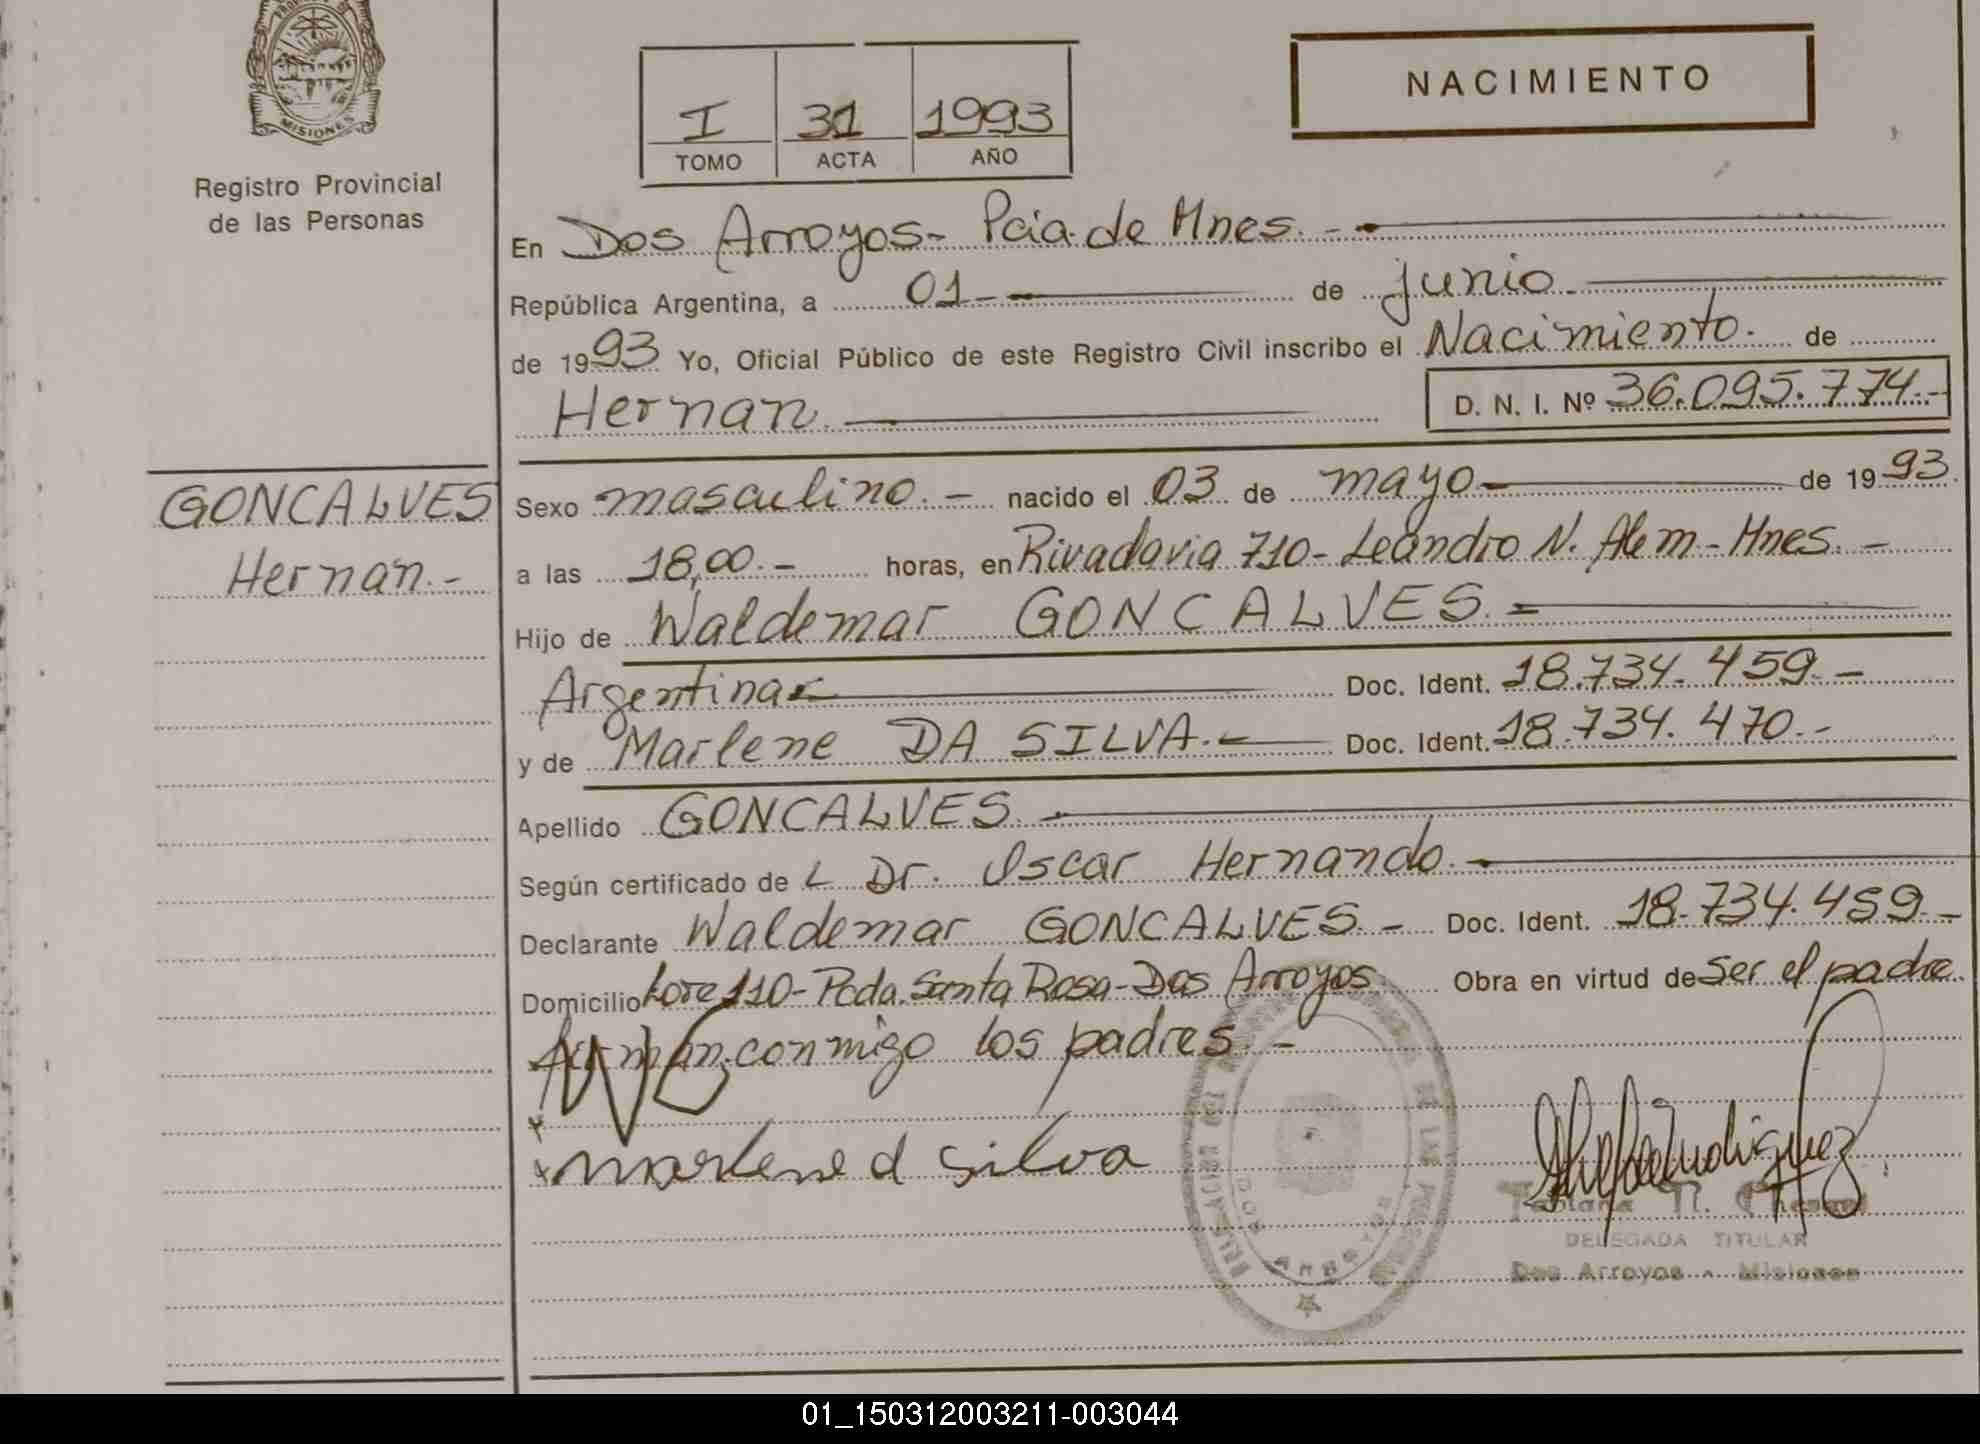 MISIONES
Registro Provincial
de las Personas
GONCALVES
Hernan.-
I 31 1993
TOMO ACTA AÑO
NACIMIENTO
En Dos Arroyos- Pcia. de Mnes.-
República Argentina, a 01- de junio.
de 1993 Yo, Oficial Público de este Registro Civil inscribo el Nacimiento. de
Hernan. D. N. I. Nº 36.095.774.-
Sexo masculino.- nacido el 03 de mayo- de 1993.
a las 18,00.- horas, en Rivadavia 710- Leandro N. Alem- Mnes.-
Hijo de Waldemar GONCALVES.-
Argentina- Doc. Ident. 18.734.459.-
y de Marlene DA SILVA.- Doc. Ident. 18.734.470.-
Apellido GONCALVES.
Según certificado de L Dr. Oscar Hernando.-
Declarante Waldemar GONCALVES.- Doc. Ident. 18.734.459.-
Domicilio Lote 110- Pcda. Santa Rosa- Dos Arroyos Obra en virtud de ser el padre.
firman conmigo los padres.-
marlene d silva
DE LAS
DOS ARROYOS
DELEGADA TITULAR
Dos Arroyos - Misiones
01_150312003211-003044